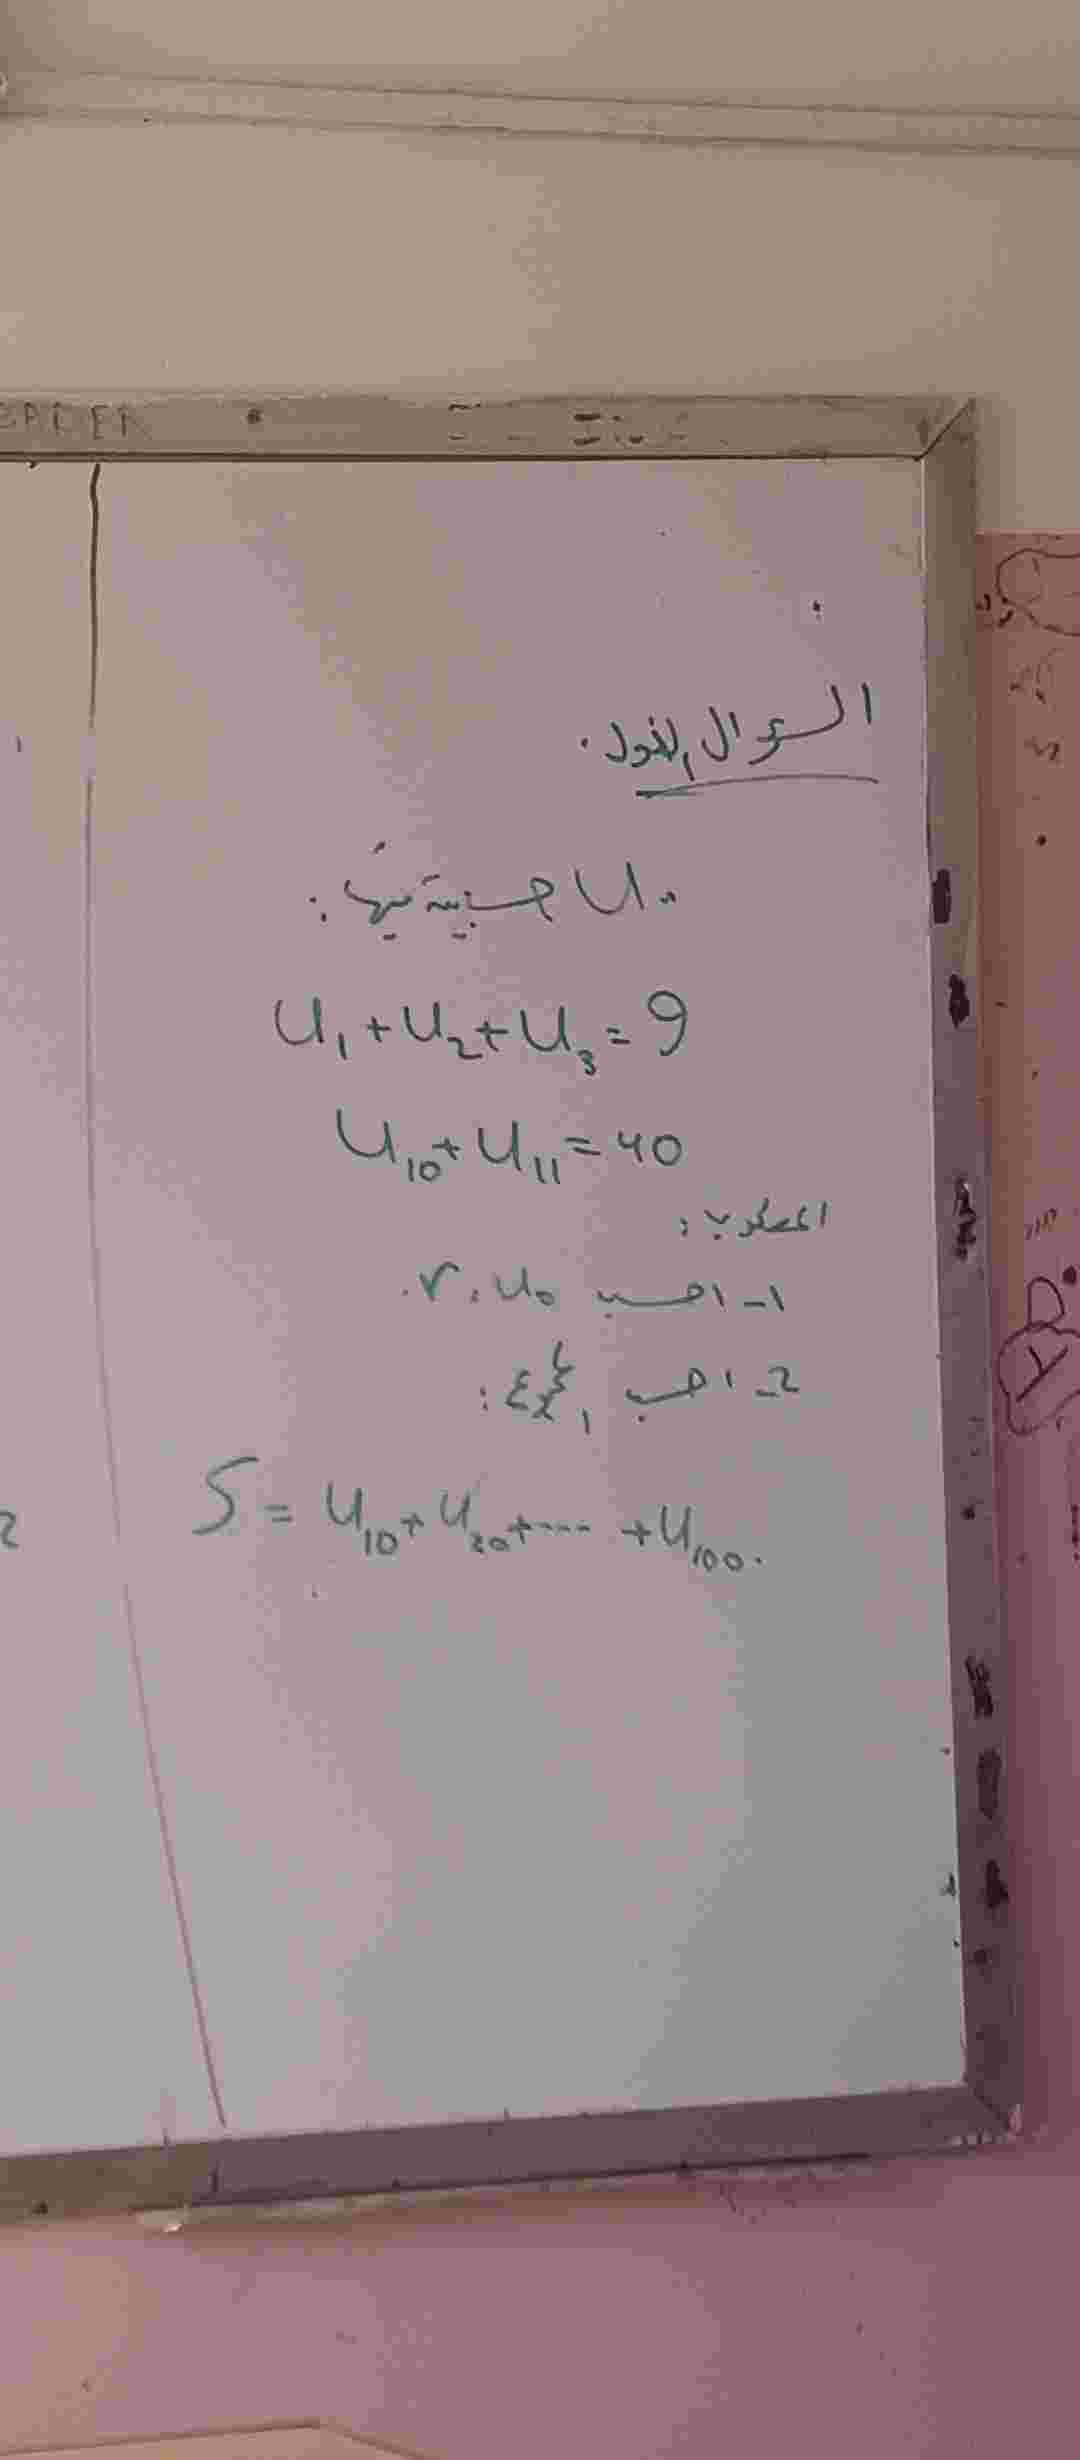 السؤال الأول.
Uₙ حسابية فيها:
U₁+U₂+U₃=9
U₁₀+U₁₁=40
المطلوب:
1- احسب r, u₀.
2- احسب
S = U₁₀+U₂₀+---- +U₁₀₀.